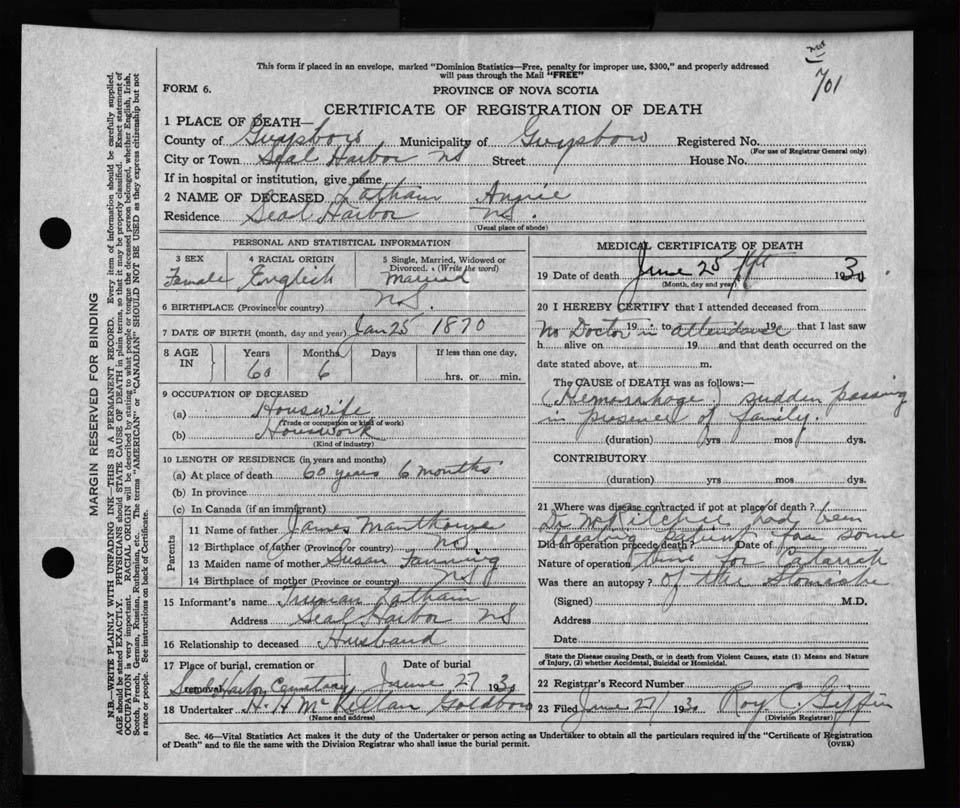 No
701
This form if placed in an envelope, marked "Dominion Statistics—Free, penalty for improper use, $300," and properly addressed
will pass through the Mail "FREE"
FORM 6.
PROVINCE OF NOVA SCOTIA
CERTIFICATE OF REGISTRATION OF DEATH
1 PLACE OF DEATH—
County of Guysboro Municipality of Guysboro Registered No.
(For use of Registrar General only)
City or Town Seal Harbor NS Street House No.
If in hospital or institution, give name
2 NAME OF DECEASED Latham Angie
Residence Seal Harbor NS.
(Usual place of abode)
PERSONAL AND STATISTICAL INFORMATION
3 SEX 4 RACIAL ORIGIN 5 Single, Married, Widowed or
Divorced. (Write the word)
Female English Married
6 BIRTHPLACE (Province or country) NS.
7 DATE OF BIRTH (month, day and year) Jan 25 1870
8 AGE IN Years Months Days If less than one day,
60 6 hrs. or min.
9 OCCUPATION OF DECEASED
(a) Houswife
(Trade or occupation or kind of work)
(b) Houswork
(Kind of industry)
10 LENGTH OF RESIDENCE (in years and months)
(a) At place of death 60 years 6 months
(b) In province
(c) In Canada (if an immigrant)
Parents
11 Name of father James Manthorne
12 Birthplace of father (Province or country) NS
13 Maiden name of mother Susan Fanning
14 Birthplace of mother (Province or country) NS
15 Informant's name Truman Latham
Address Seal Harbor NS
16 Relationship to deceased Husband
17 Place of burial, cremation or removal Date of burial
Seal Harbor Cemetary June 27 1930
18 Undertaker H. H McKellan Goldboro
(Name and address)
MEDICAL CERTIFICATE OF DEATH
19 Date of death June 25 1930
(Month, day and year)
20 I HEREBY CERTIFY that I attended deceased from
No Doctor in attendance 19 to 19 that I last saw
h alive on 19 and that death occurred on the
date stated above, at m.
The CAUSE of DEATH was as follows:—
(Hemorrhage) sudden passing
in presence of family.
(duration) yrs mos dys.
CONTRIBUTORY
(duration) yrs mos dys.
21 Where was disease contracted if not at place of death?
Dr McRitchie had been
treating patient for some
Did an operation precede death? Date of
Nature of operation time for Catarrh
Was there an autopsy? of the Stomache
(Signed) M.D.
Address
Date
State the Disease causing Death, or in death from Violent Causes, state (1) Means and Nature
of Injury, (2) whether Accidental, Suicidal or Homicidal.
22 Registrar's Record Number
23 Filed June 27 1930 Roy C. Giffin
(Division Registrar)
Sec. 46—Vital Statistics Act makes it the duty of the Undertaker or person acting as Undertaker to obtain all the particulars required in the "Certificate of Registration
of Death" and to file the same with the Division Registrar who shall issue the burial permit.
(OVER)
MARGIN RESERVED FOR BINDING
N.B.—WRITE PLAINLY WITH UNFADING INK—THIS IS A PERMANENT RECORD. Every item of information should be carefully supplied.
AGE should be stated EXACTLY. PHYSICIANS should STATE CAUSE OF DEATH in plain terms, so that it may be properly classified. Exact statement of
OCCUPATION is very important. RACIAL ORIGIN will be described by stating to what people or tongue the deceased person belonged, whether English, Irish,
Scotch, French, German, Russian, Ruthenian, etc. The terms "AMERICAN" or "CANADIAN" SHOULD NOT BE USED as they express citizenship but not
a race or people. See instructions on back of Certificate.